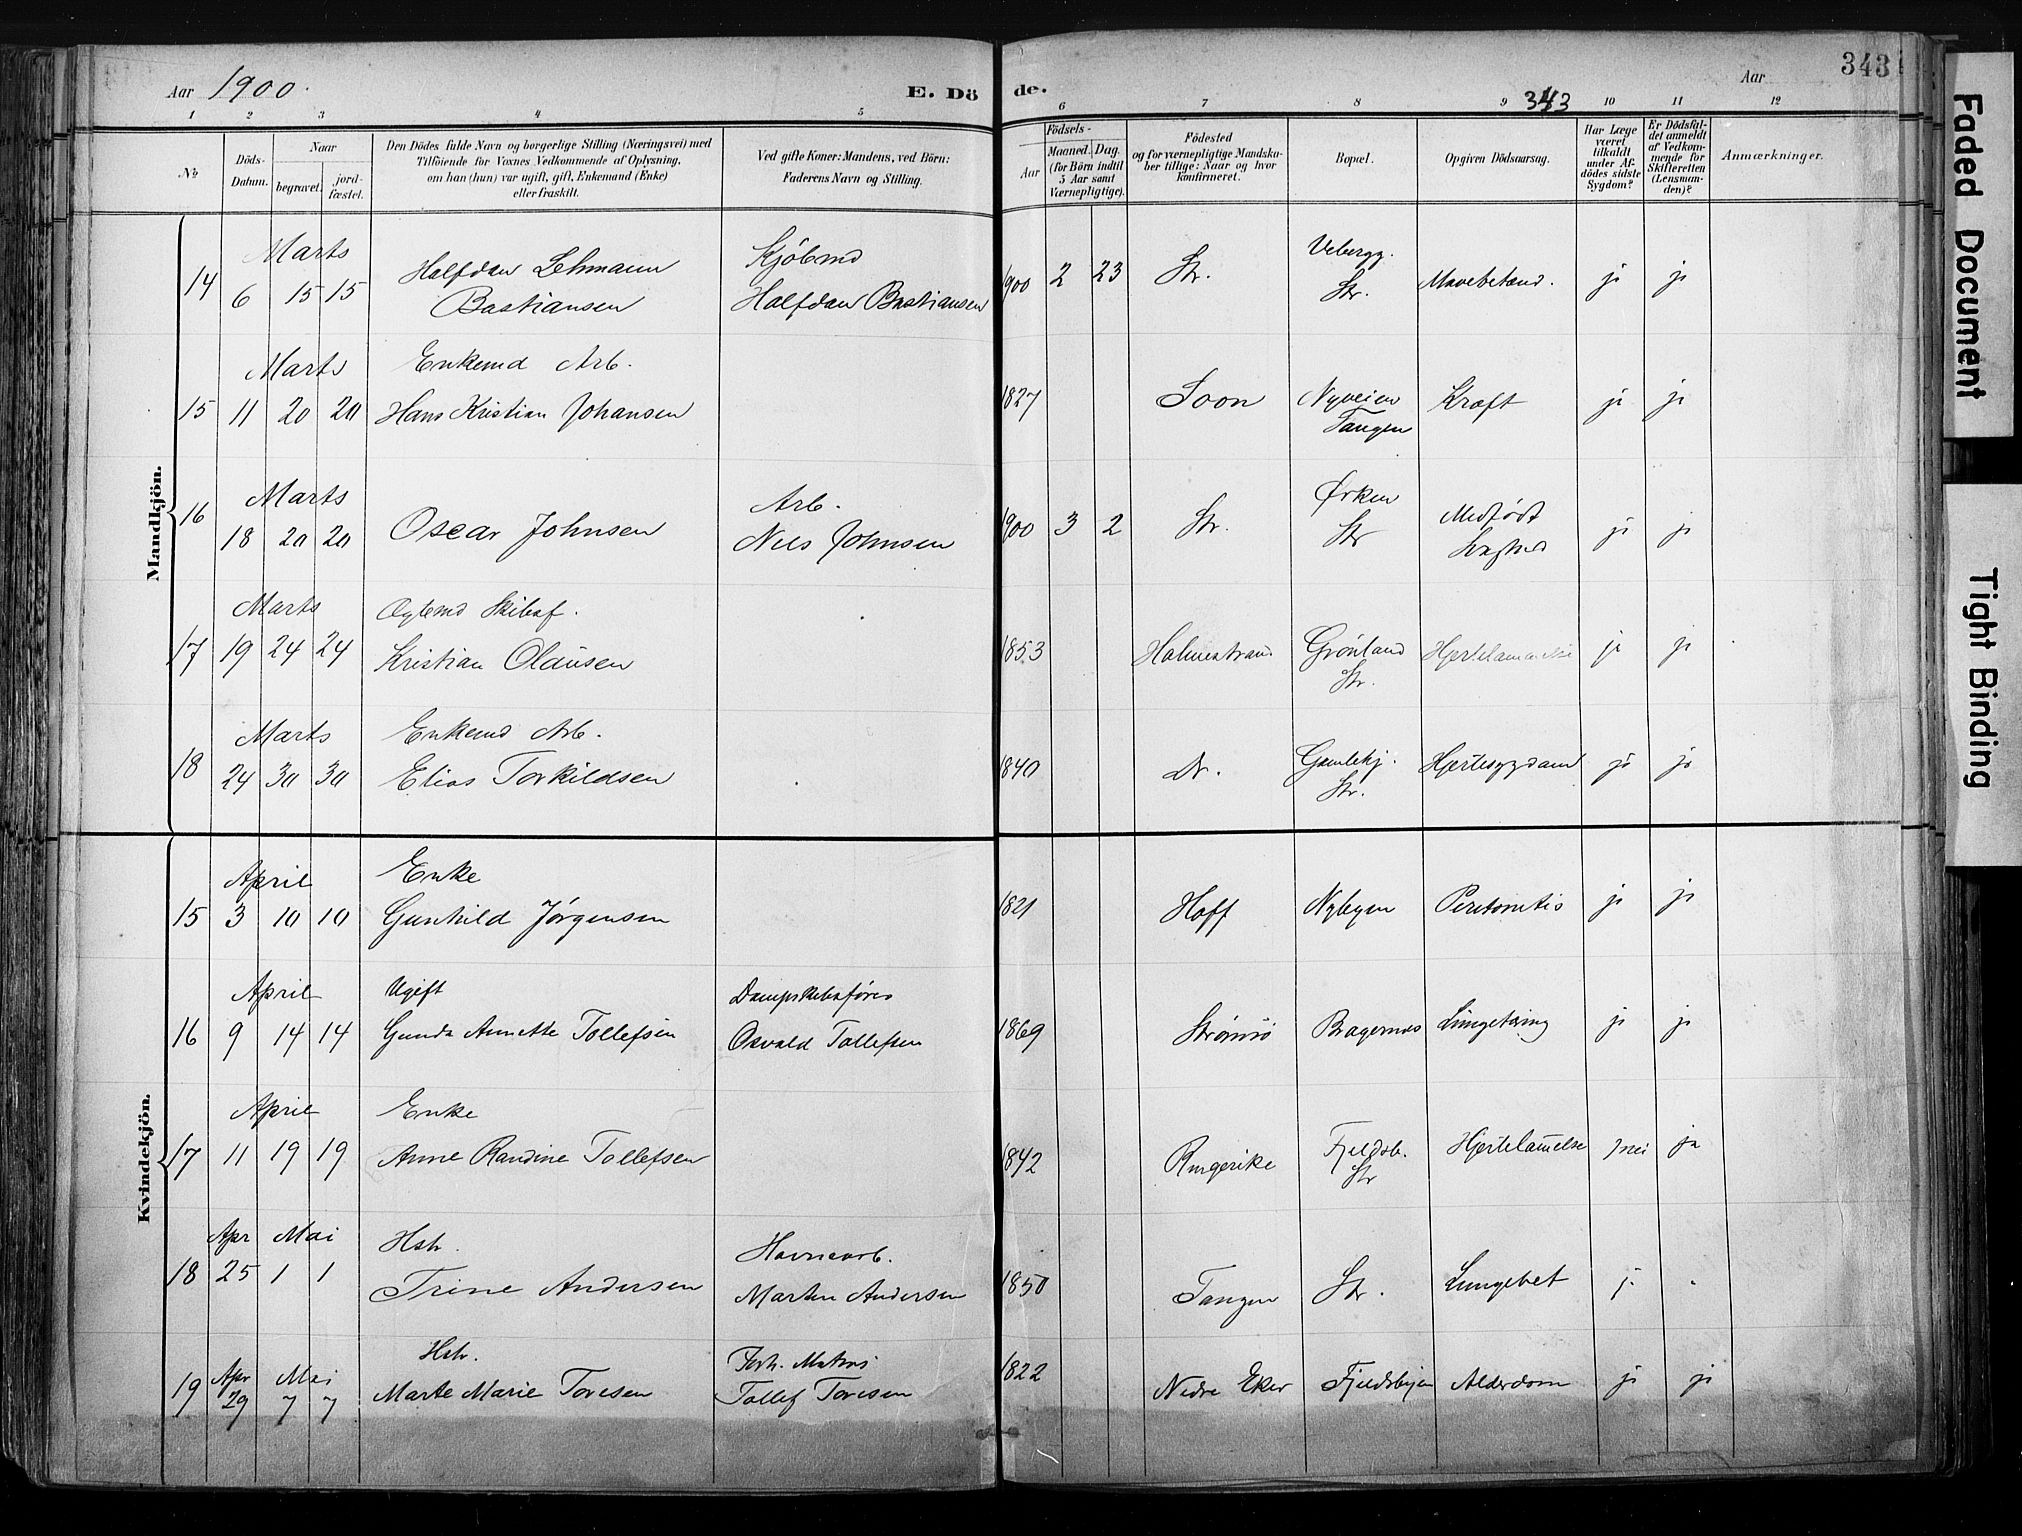 Aar 1900.
E. Dö
de.
Aar
343
343
1 2 3 4 5 6 7 8 9 10 11 12
No
Döds-Datum.
Naar
begravet.
jordfæstet.
Den Dödes fulde Navn og borgerlige Stilling (Næringsvei) med
Tilföiende for Voxnes Vedkommende af Oplysning,
om han (hun) var ugift, gift, Enkemand (Enke)
eller fraskilt.
Ved gifte Koner: Mandens, ved Börn:
Faderens Navn og Stilling.
Födsels-
Aar
Maaned. Dag.
(for Börn indtil
5 Aar samt
Værnepligtige).
Födested
og for værnepligtige Mandska-
ber tillige: Naar og hvor
konfirmeret.
Bopæl.
Opgiven Dödsaarsag.
Har Læge
været
tilkaldt
under Af-
dödes sidste
Sygdom?
Er Dödsfal-
det anmeldt
af Vedkom-
mende for
Skifteretten
(Lensman-
den)?
Anmærkninger.
Mandkjön.
14 Marts 6 15 15 Halfdan Lehmann Bastiansen Kjöbmd Halfdan Bastiansen 1900 2 23 Str. Str. Mavebetænd. ja ja
15 Marts 11 20 20 Enkemd Arb. Hans Kristian Johansen 1827 Soon Nyveien Tangen Kræft ja ja
16 Marts 18 20 20 Oscar Johnsen Arb. Nils Johnsen 1900 3 2 Str. Ørken Str Medfødt Svaghed ja ja
17 Marts 19 24 24 Kristian Olausen 1853 Holmestrand Grønland Str. Hjertelammelse ja ja
18 Marts 24 30 30 Enkemd Arb. Elias Torkildsen 1840 Dr. Gamlekj. Str. Hjertesygdom ja ja
Kvindekjön.
15 April 3 10 10 Enke Gunhild Jørgensen 1821 Hoff Nybyen Peritonitis ja ja
16 April 9 14 14 Ugift Gunda Annette Tollefsen Dampskibsfører Osvald Tollefsen 1869 Strømsø Bragernes Lungetæring ja ja
17 April 11 19 19 Enke Anne Randine Tollefsen 1842 Ringerike Fjeldsb. Str Hjertelammelse nei ja
18 Apr 25 Mai 1 1 Hstr. Trine Andersen Havnearb. Martin Andersen 1850 Tangen Str. Lungebet j.
19 Apr 29 Mai 7 7 Hstr. Marte Marie Toresen Forh. Matros Tollef Toresen 1822 Nedre Eker Fjeldsbyen Alderdom ja ja
Faded Document
Tight Binding